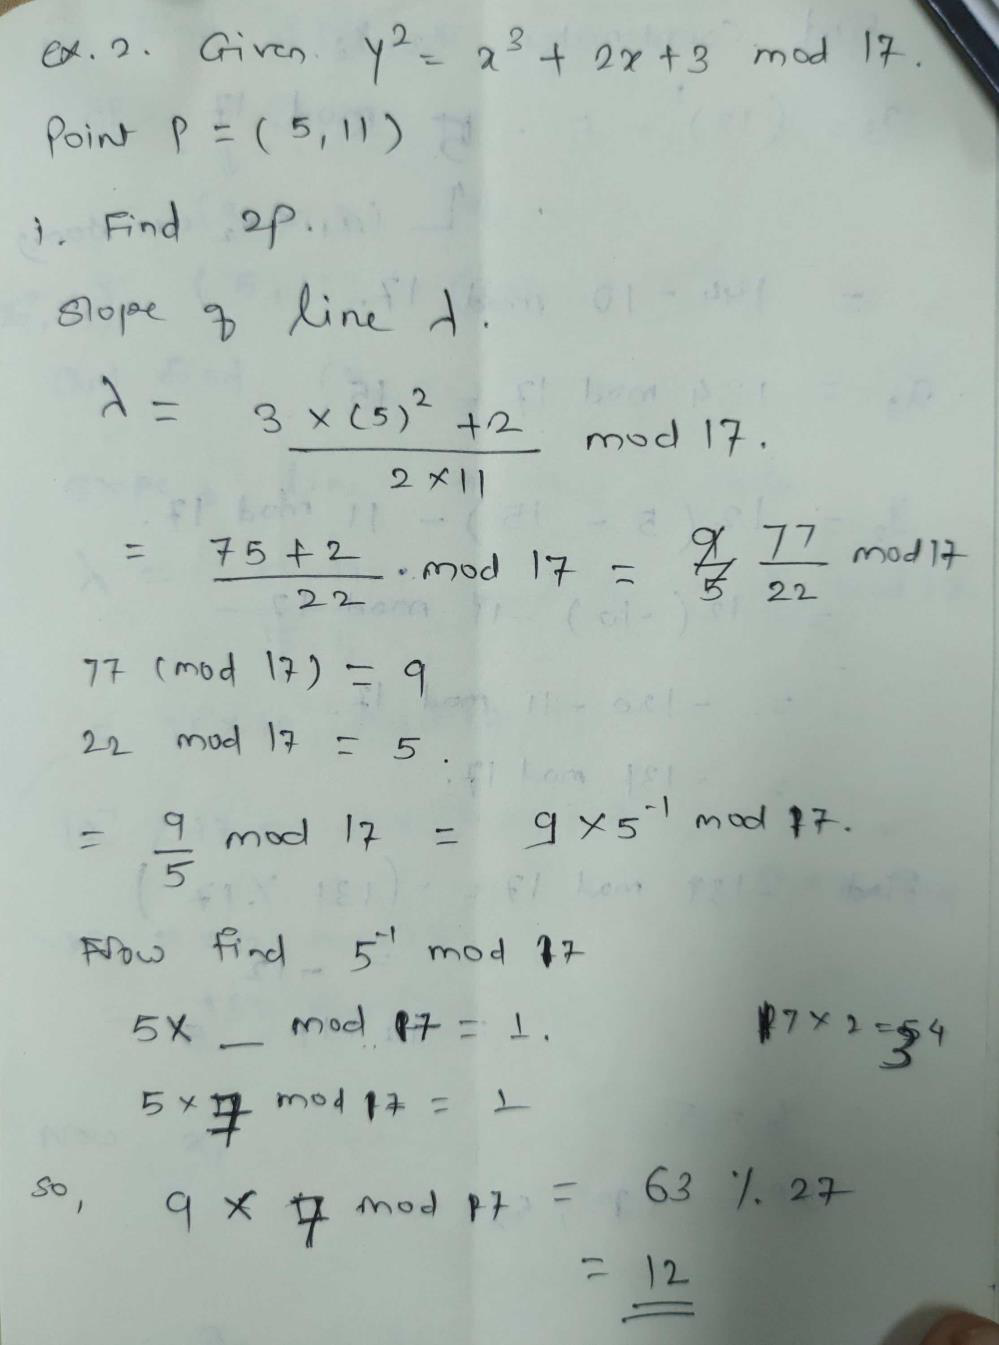 ex. 2. Given y² = x³ + 2x + 3 mod 17.
Point P = (5, 11)
i. Find 2P.
Slope of line λ.
λ = 3 × (5)² + 2 / 2 × 11 mod 17.
= 75 + 2 / 22 . mod 17 = 77 / 22 mod 17
77 (mod 17) = 9
22 mod 17 = 5.
= 9 / 5 mod 17 = 9 × 5⁻¹ mod 17.
Now find 5⁻¹ mod 17
5 × _ mod 17 = 1. 17 × 2 = 34
5 × 7 mod 17 = 1
so, 9 × 7 mod 17 = 63 % 27
= 12